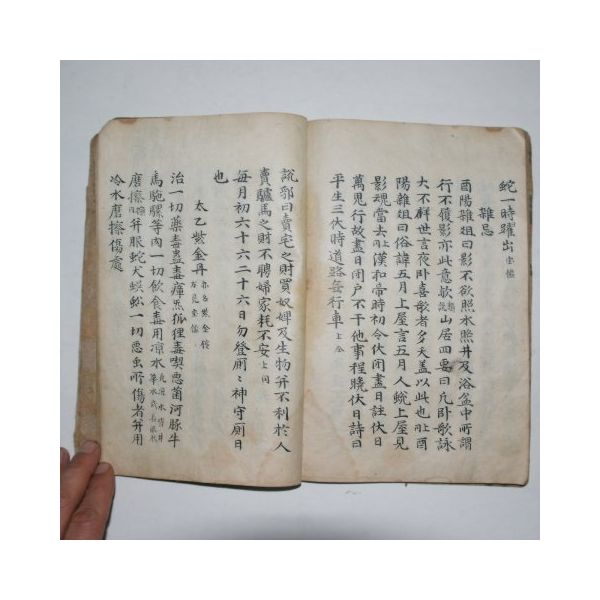 蛇一時躍出 宝鑑
雜忌
酉陽雜俎曰影不欲照水照井及浴盆中所謂
行不履影亦此意歟 類說 山居四要曰凡卧歌詠
大不祥世言夜卧喜歌者多夭盖以此也 上仝 酉
陽雜俎曰俗諱五月上屋言五月人蛻上屋見
影魂當去 上仝 漢和帝時初令伏閉盡日註伏日
萬鬼行故盡日閉户不干他事程曉伏日詩曰
平生三伏時道路無行車 上仝
說郛曰賣宅之財買奴婢及生物并不利於人
賣驢馬之財不聘婦家耗不安 上同
每月初六十六二十六日勿登厠厠神守厠日
也
太乙紫金丹
治一切藥毒蠱毒瘴氣狐狸毒喫惡菌河豚牛
馬駞騾等肉一切飲食毒用凉水
磨搽并服蛇犬蜈蚣一切惡虫所傷者并用
冷水磨搽傷處